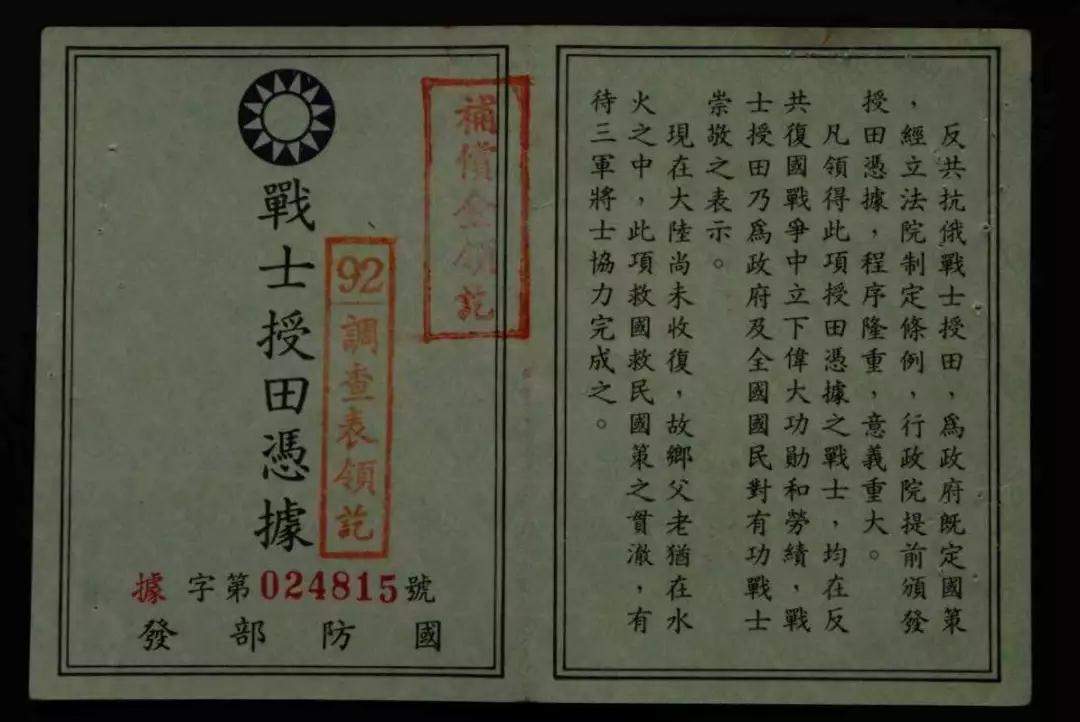 反共抗俄戰士授田，為政府既定國策
，經立法院制定條例，行政院提前頒發
授田憑據，程序隆重，意義重大。
凡領得此項授田憑據之戰士，均在反
共復國戰爭中立下偉大功勛和勞績，戰
士授田乃為政府及全國國民對有功戰士
崇敬之表示。
現在大陸尚未收復，故鄉父老猶在水
火之中，此項救國救民國策之貫澈，有
待三軍將士協力完成之。
補償金領訖
戰士授田憑據
92
調查表領訖
據字第024815號
國防部發